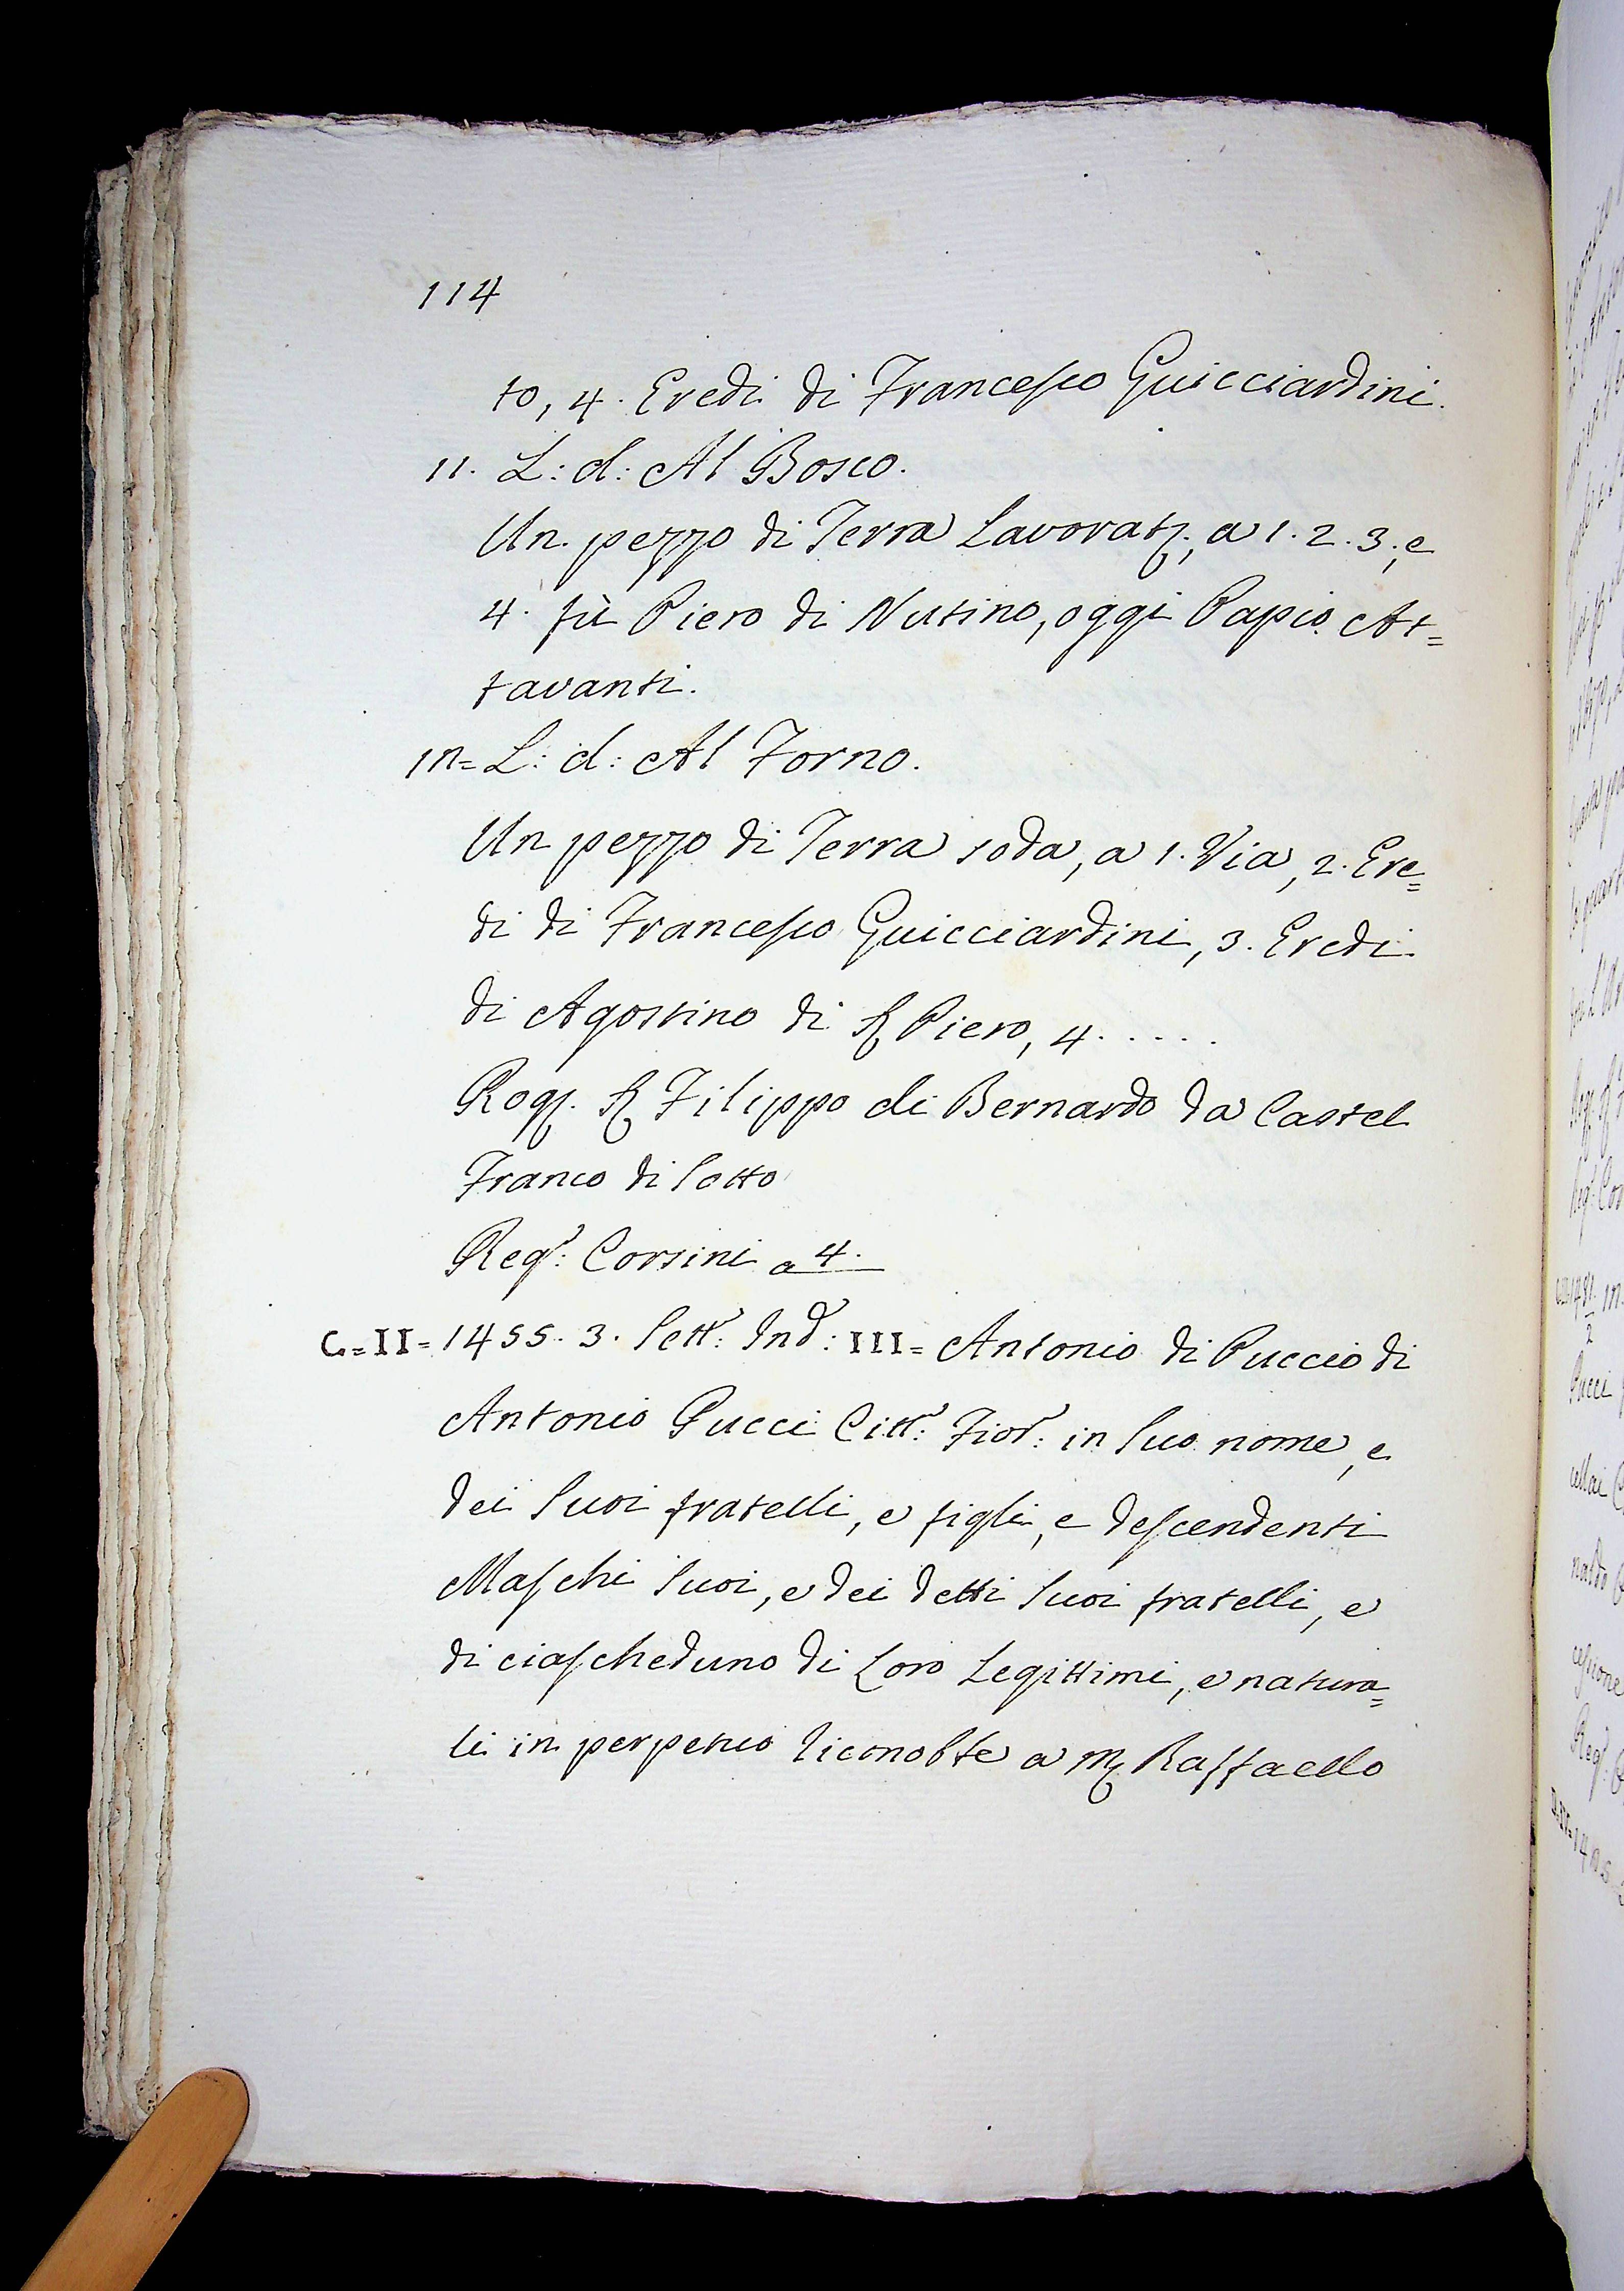 114
to, 4. Eredi di Francesco Guicciardini.
11. L: d: Al Bosco.
Un pezzo di Terra Lavorat., a 1. 2. 3., e
4. fù Piero di Nutino, oggi Papio At=
tavanti.
in= L: d: Al Forno.
Un pezzo di Terra soda, a 1. Via, 2. Ere=
di di Francesco Guicciardini, 3. Eredi
di Agostino di S. Piero, 4. . . . .
Rog. S. Filippo di Bernardo da Castel
Franco di Sotto
Reg.: Corsini a 4.
C=II= 1455. 3. Sett: Ind: III= Antonio di Puccio di
Antonio Pucci Citt: Fior: in Suo nome, e
dei Suoi fratelli, e figli, e descendenti
Maschi Suoi, e dei detti Suoi fratelli, e
di ciascheduno di Loro Legittimi, e natura=
li in perpetuo riconobbe a M. Raffaello